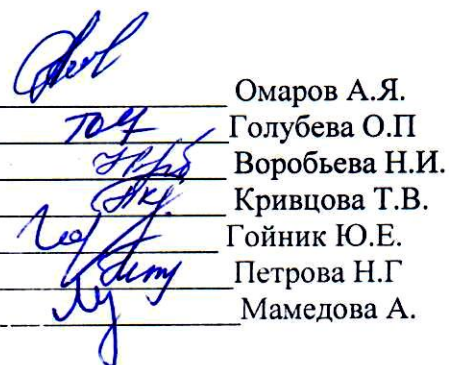 Омаров А.Я.
Голубева О.П
Воробьева Н.И.
Кривцова Т.В.
Гойник Ю.Е.
Петрова Н.Г
Мамедова А.